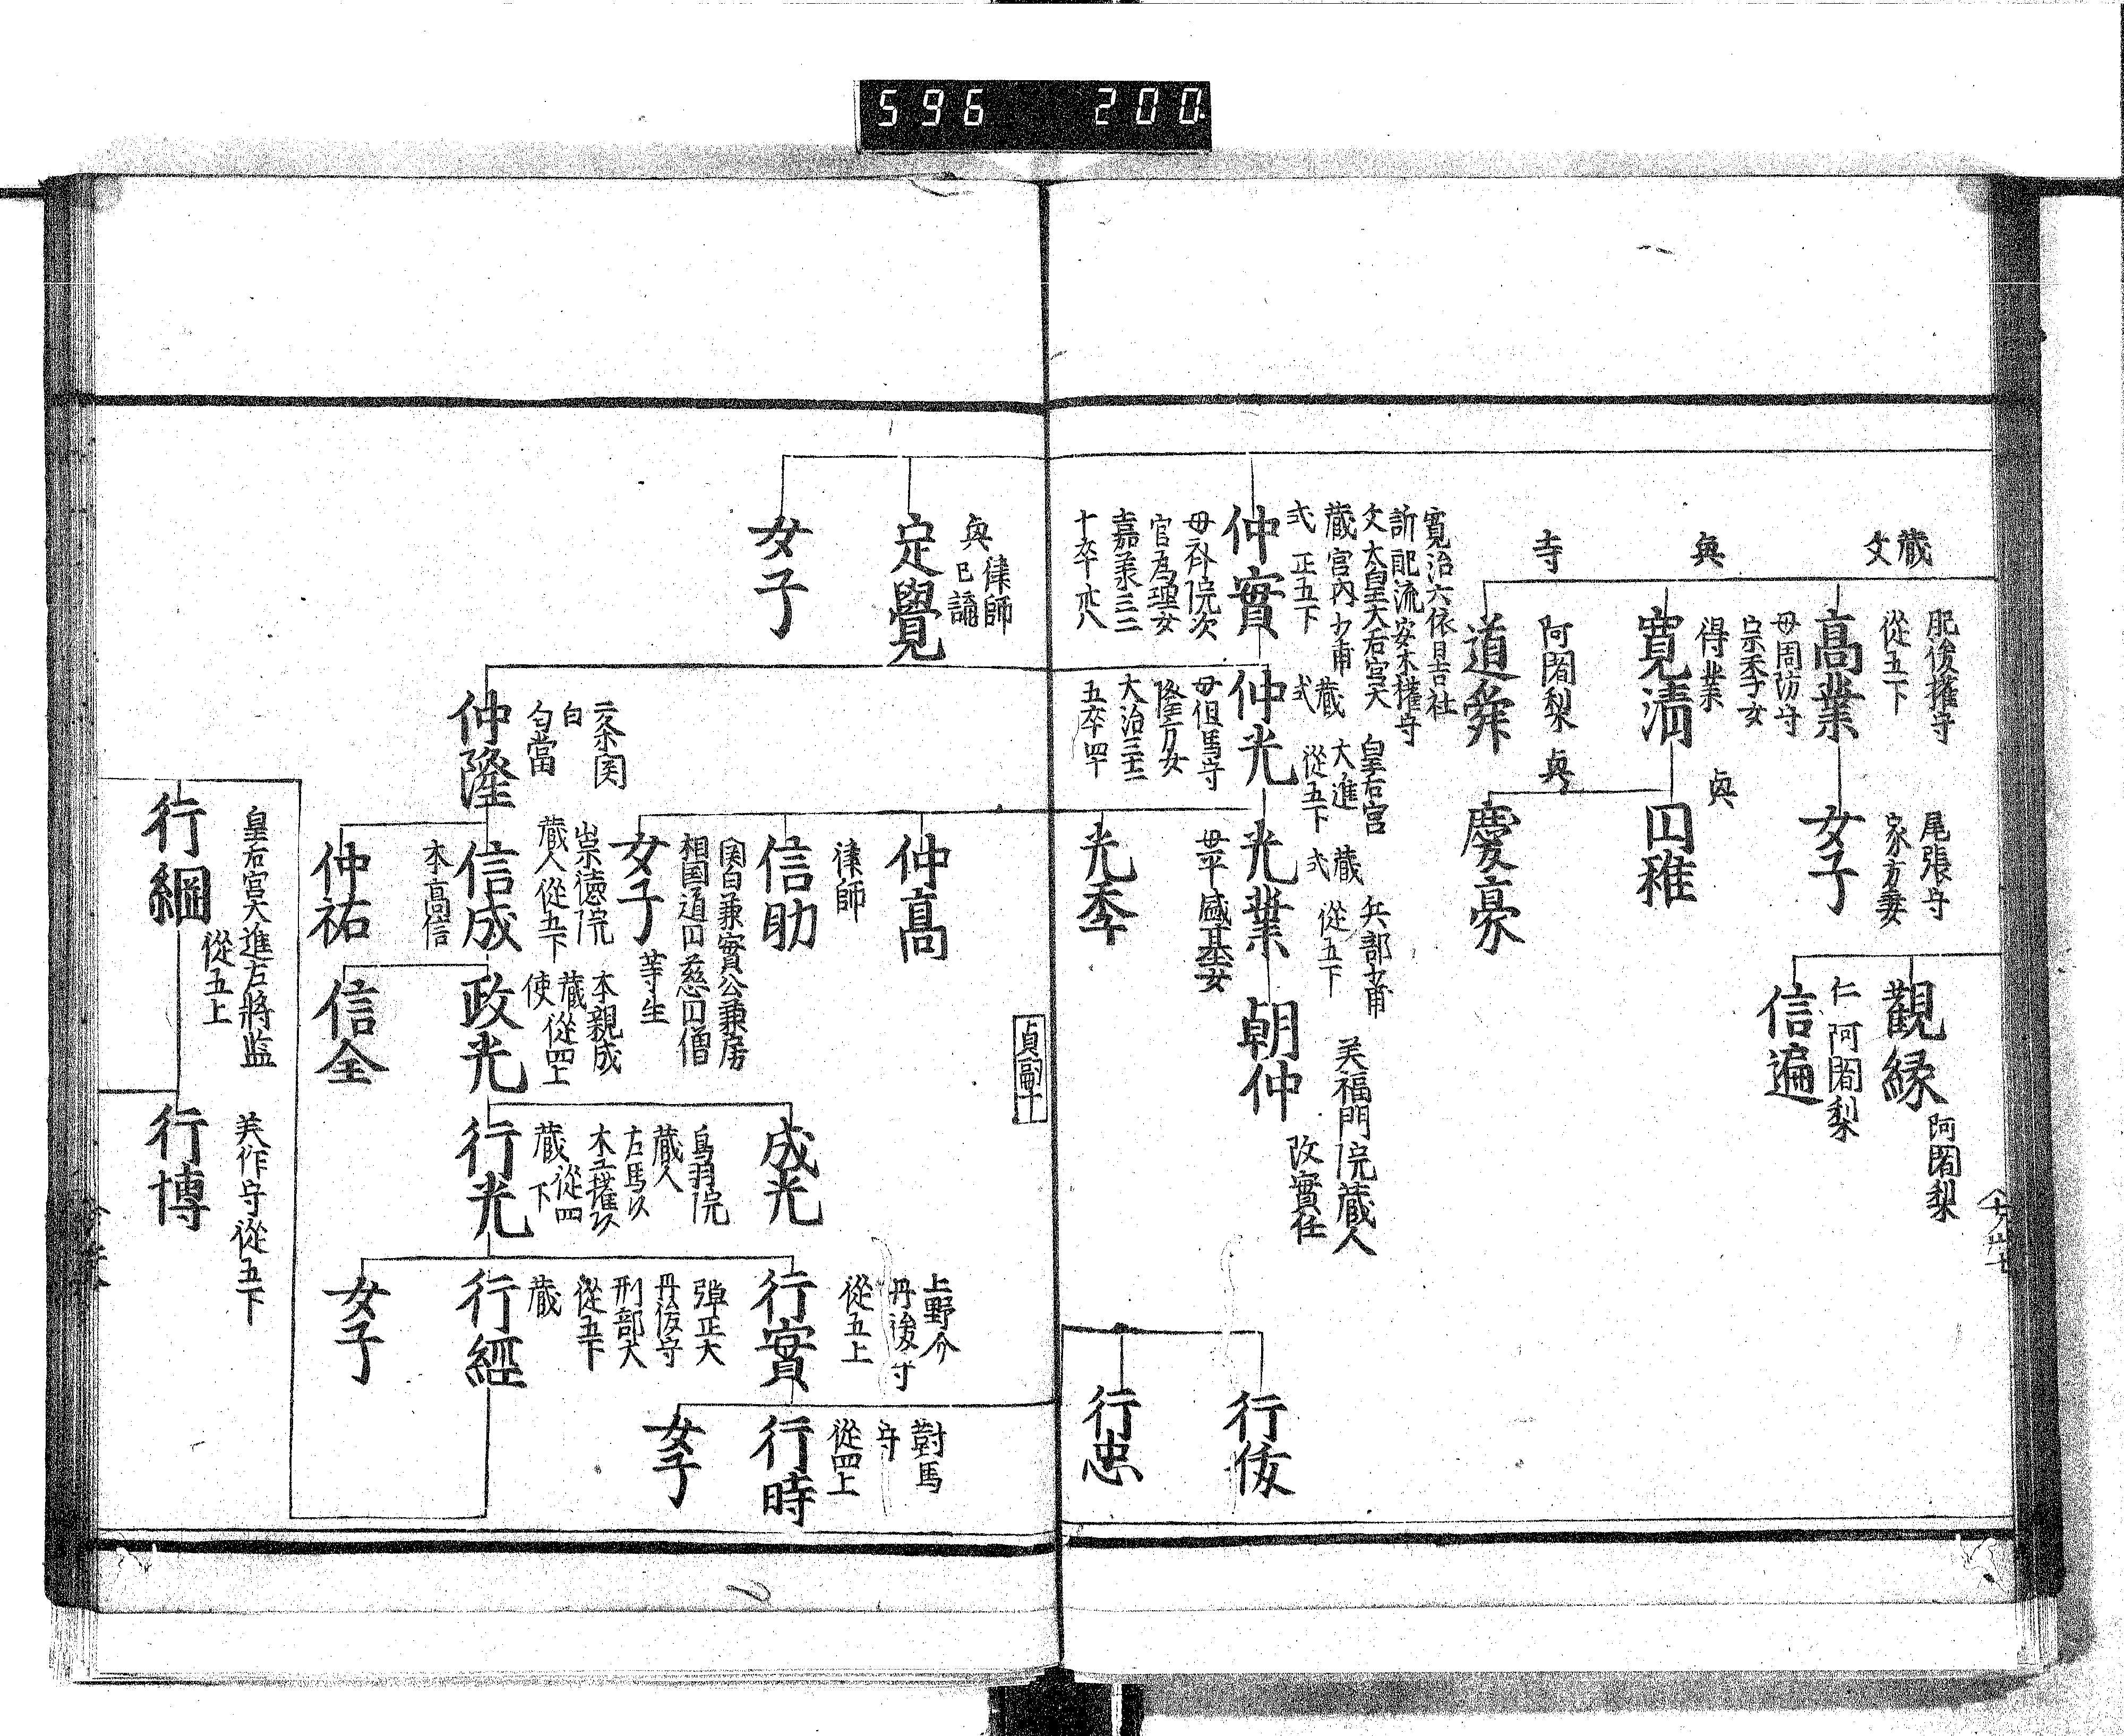 596 200
蔵
文
肥後權守
從五下
高業
母周防守
宗季女
尾張守
家方妻
女子
觀縁
阿闍梨
仁 阿闍梨
信遍
與
得業
寛清
與
囚稚
寺
阿闍梨
道舜
與
慶豪
寛治六依日吉社
訴配流安木權守
文 太皇大后宮大
蔵 宮内少甫
式 正五下
仲實
母斎院次
官為理女
嘉承三二
十卒
皇后宮
大進
蔵
式 從五下
仲光
母但馬守
隆方女
大治三十二
五卒四
兵部少甫
蔵
式 從五下
光業
母平盛基女
美福門院蔵人
改實任
朝仲
光季
行俊
行忠
律師
與 已講
定覺
女子
貞嗣十
仲高
律師
信助
関白兼實公兼房
相国道囚慈囚僧
等生
女子
二条関
白
勾當
仲隆
崇徳院
蔵人從五下
信成
本高信
仲祐
本親成
蔵 從四上
使
政光
信全
成光
鳥羽院
蔵人
右馬以
木工權以
蔵 從四
下
行光
上野介
丹後守
從五上
行實
弾正大
丹後守
刑部大
從五下
蔵
行經
女子
對馬
守
從四上
行時
女子
皇后宮大進右將監
從五上
行綱
美作守從五下
行博